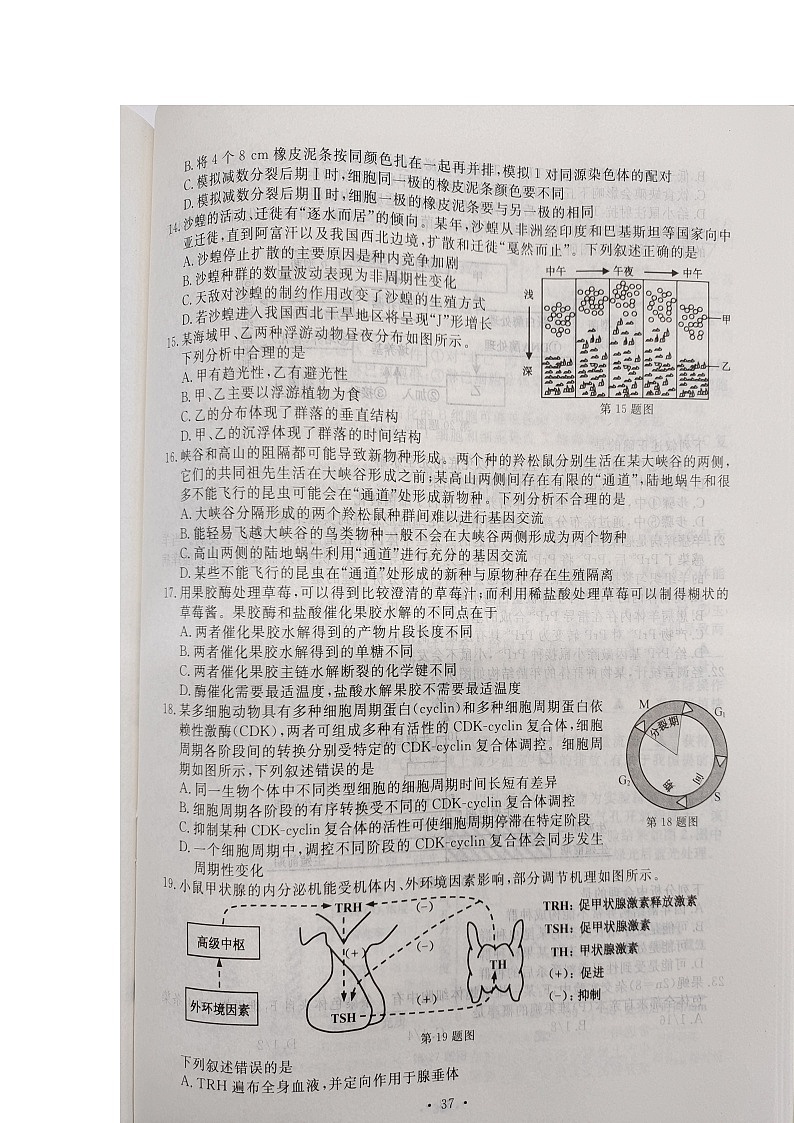 B. 将4个8 cm橡皮泥条按同颜色扎在一起再并排,模拟1对同源染色体的配对
C. 模拟减数分裂后期Ⅰ时,细胞同一极的橡皮泥条颜色要不同
D. 模拟减数分裂后期Ⅱ时,细胞一极的橡皮泥条要与另一极的相同
14. 沙蝗的活动、迁徙有“逐水而居”的倾向。某年,沙蝗从非洲经印度和巴基斯坦等国家向中
亚迁徙,直到阿富汗以及我国西北边境,扩散和迁徙“戛然而止”。下列叙述正确的是
A. 沙蝗停止扩散的主要原因是种内竞争加剧
B. 沙蝗种群的数量波动表现为非周期性变化
C. 天敌对沙蝗的制约作用改变了沙蝗的生殖方式
D. 若沙蝗进入我国西北干旱地区将呈现“J”形增长
15. 某海域甲、乙两种浮游动物昼夜分布如图所示。
下列分析中合理的是
A. 甲有趋光性,乙有避光性
B. 甲、乙主要以浮游植物为食
C. 乙的分布体现了群落的垂直结构
D. 甲、乙的沉浮体现了群落的时间结构
中午 午夜 中午
浅
深
甲
乙
第15题图
16. 峡谷和高山的阻隔都可能导致新物种形成。两个种的羚松鼠分别生活在某大峡谷的两侧,
它们的共同祖先生活在大峡谷形成之前;某高山两侧间存在有限的“通道”,陆地蜗牛和很
多不能飞行的昆虫可能会在“通道”处形成新物种。下列分析不合理的是
A. 大峡谷分隔形成的两个羚松鼠种群间难以进行基因交流
B. 能轻易飞越大峡谷的鸟类物种一般不会在大峡谷两侧形成为两个物种
C. 高山两侧的陆地蜗牛利用“通道”进行充分的基因交流
D. 某些不能飞行的昆虫在“通道”处形成的新种与原物种存在生殖隔离
17. 用果胶酶处理草莓,可以得到比较澄清的草莓汁;而利用稀盐酸处理草莓可以制得糊状的
草莓酱。果胶酶和盐酸催化果胶水解的不同点在于
A. 两者催化果胶水解得到的产物片段长度不同
B. 两者催化果胶水解得到的单糖不同
C. 两者催化果胶主链水解断裂的化学键不同
D. 酶催化需要最适温度,盐酸水解果胶不需要最适温度
18. 某多细胞动物具有多种细胞周期蛋白(cyclin)和多种细胞周期蛋白依
赖性激酶(CDK),两者可组成多种有活性的CDK-cyclin复合体,细胞
周期各阶段间的转换分别受特定的CDK-cyclin复合体调控。细胞周
期如图所示,下列叙述错误的是
A. 同一生物个体中不同类型细胞的细胞周期时间长短有差异
B. 细胞周期各阶段的有序转换受不同的CDK-cyclin复合体调控
C. 抑制某种CDK-cyclin复合体的活性可使细胞周期停滞在特定阶段
D. 一个细胞周期中,调控不同阶段的CDK-cyclin复合体会同步发生
周期性变化
M
G₁
分裂期
间
期
G₂
S
第18题图
19. 小鼠甲状腺的内分泌机能受机体内、外环境因素影响,部分调节机理如图所示。
TRH
(−)
高级中枢
(+)
(−)
TH
外环境因素
(+)
TSH
TRH:促甲状腺激素释放激素
TSH:促甲状腺激素
TH:甲状腺激素
(+):促进
(−):抑制
第19题图
下列叙述错误的是
A. TRH遍布全身血液,并定向作用于腺垂体
• 37 •